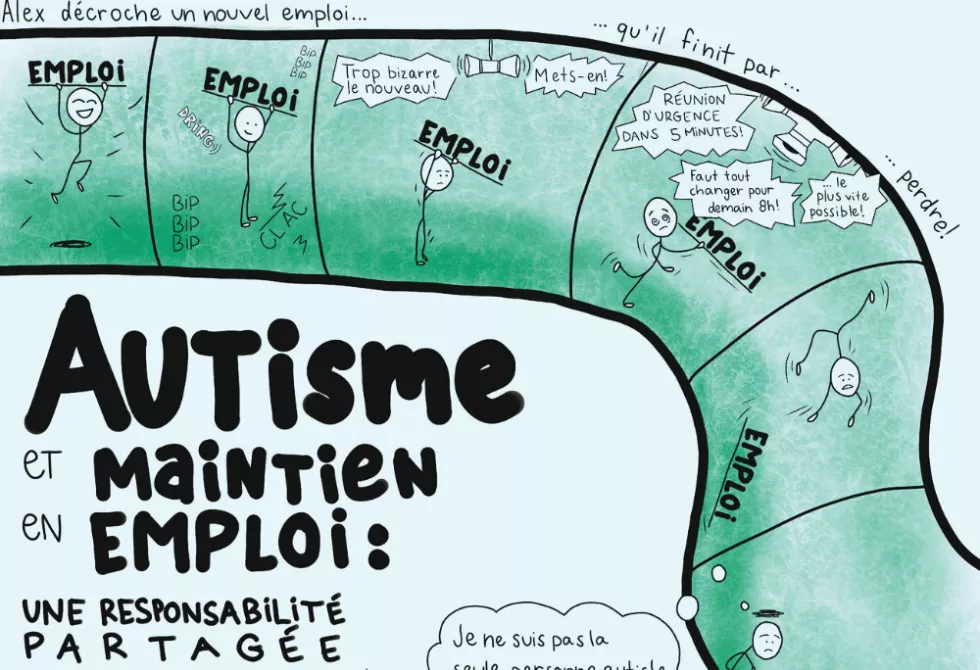 Alex décroche un nouvel emploi...
... qu'il finit par...
... perdre!
EMPLOI
EMPLOI
DRING
BIP
BIP
BIP
BIP
BIP
BIP
CLAC
Trop bizarre
le nouveau!
Mets-en!
EMPLOI
RÉUNION
D'URGENCE
DANS 5 MINUTES!
Faut tout
changer pour
demain 8h!
... le
plus vite
possible!
EMPLOI
EMPLOI
AUTISME
ET MAINTIEN
EN EMPLOI :
UNE RESPONSABILITÉ
PARTAGÉE
Je ne suis pas la
seule personne autiste